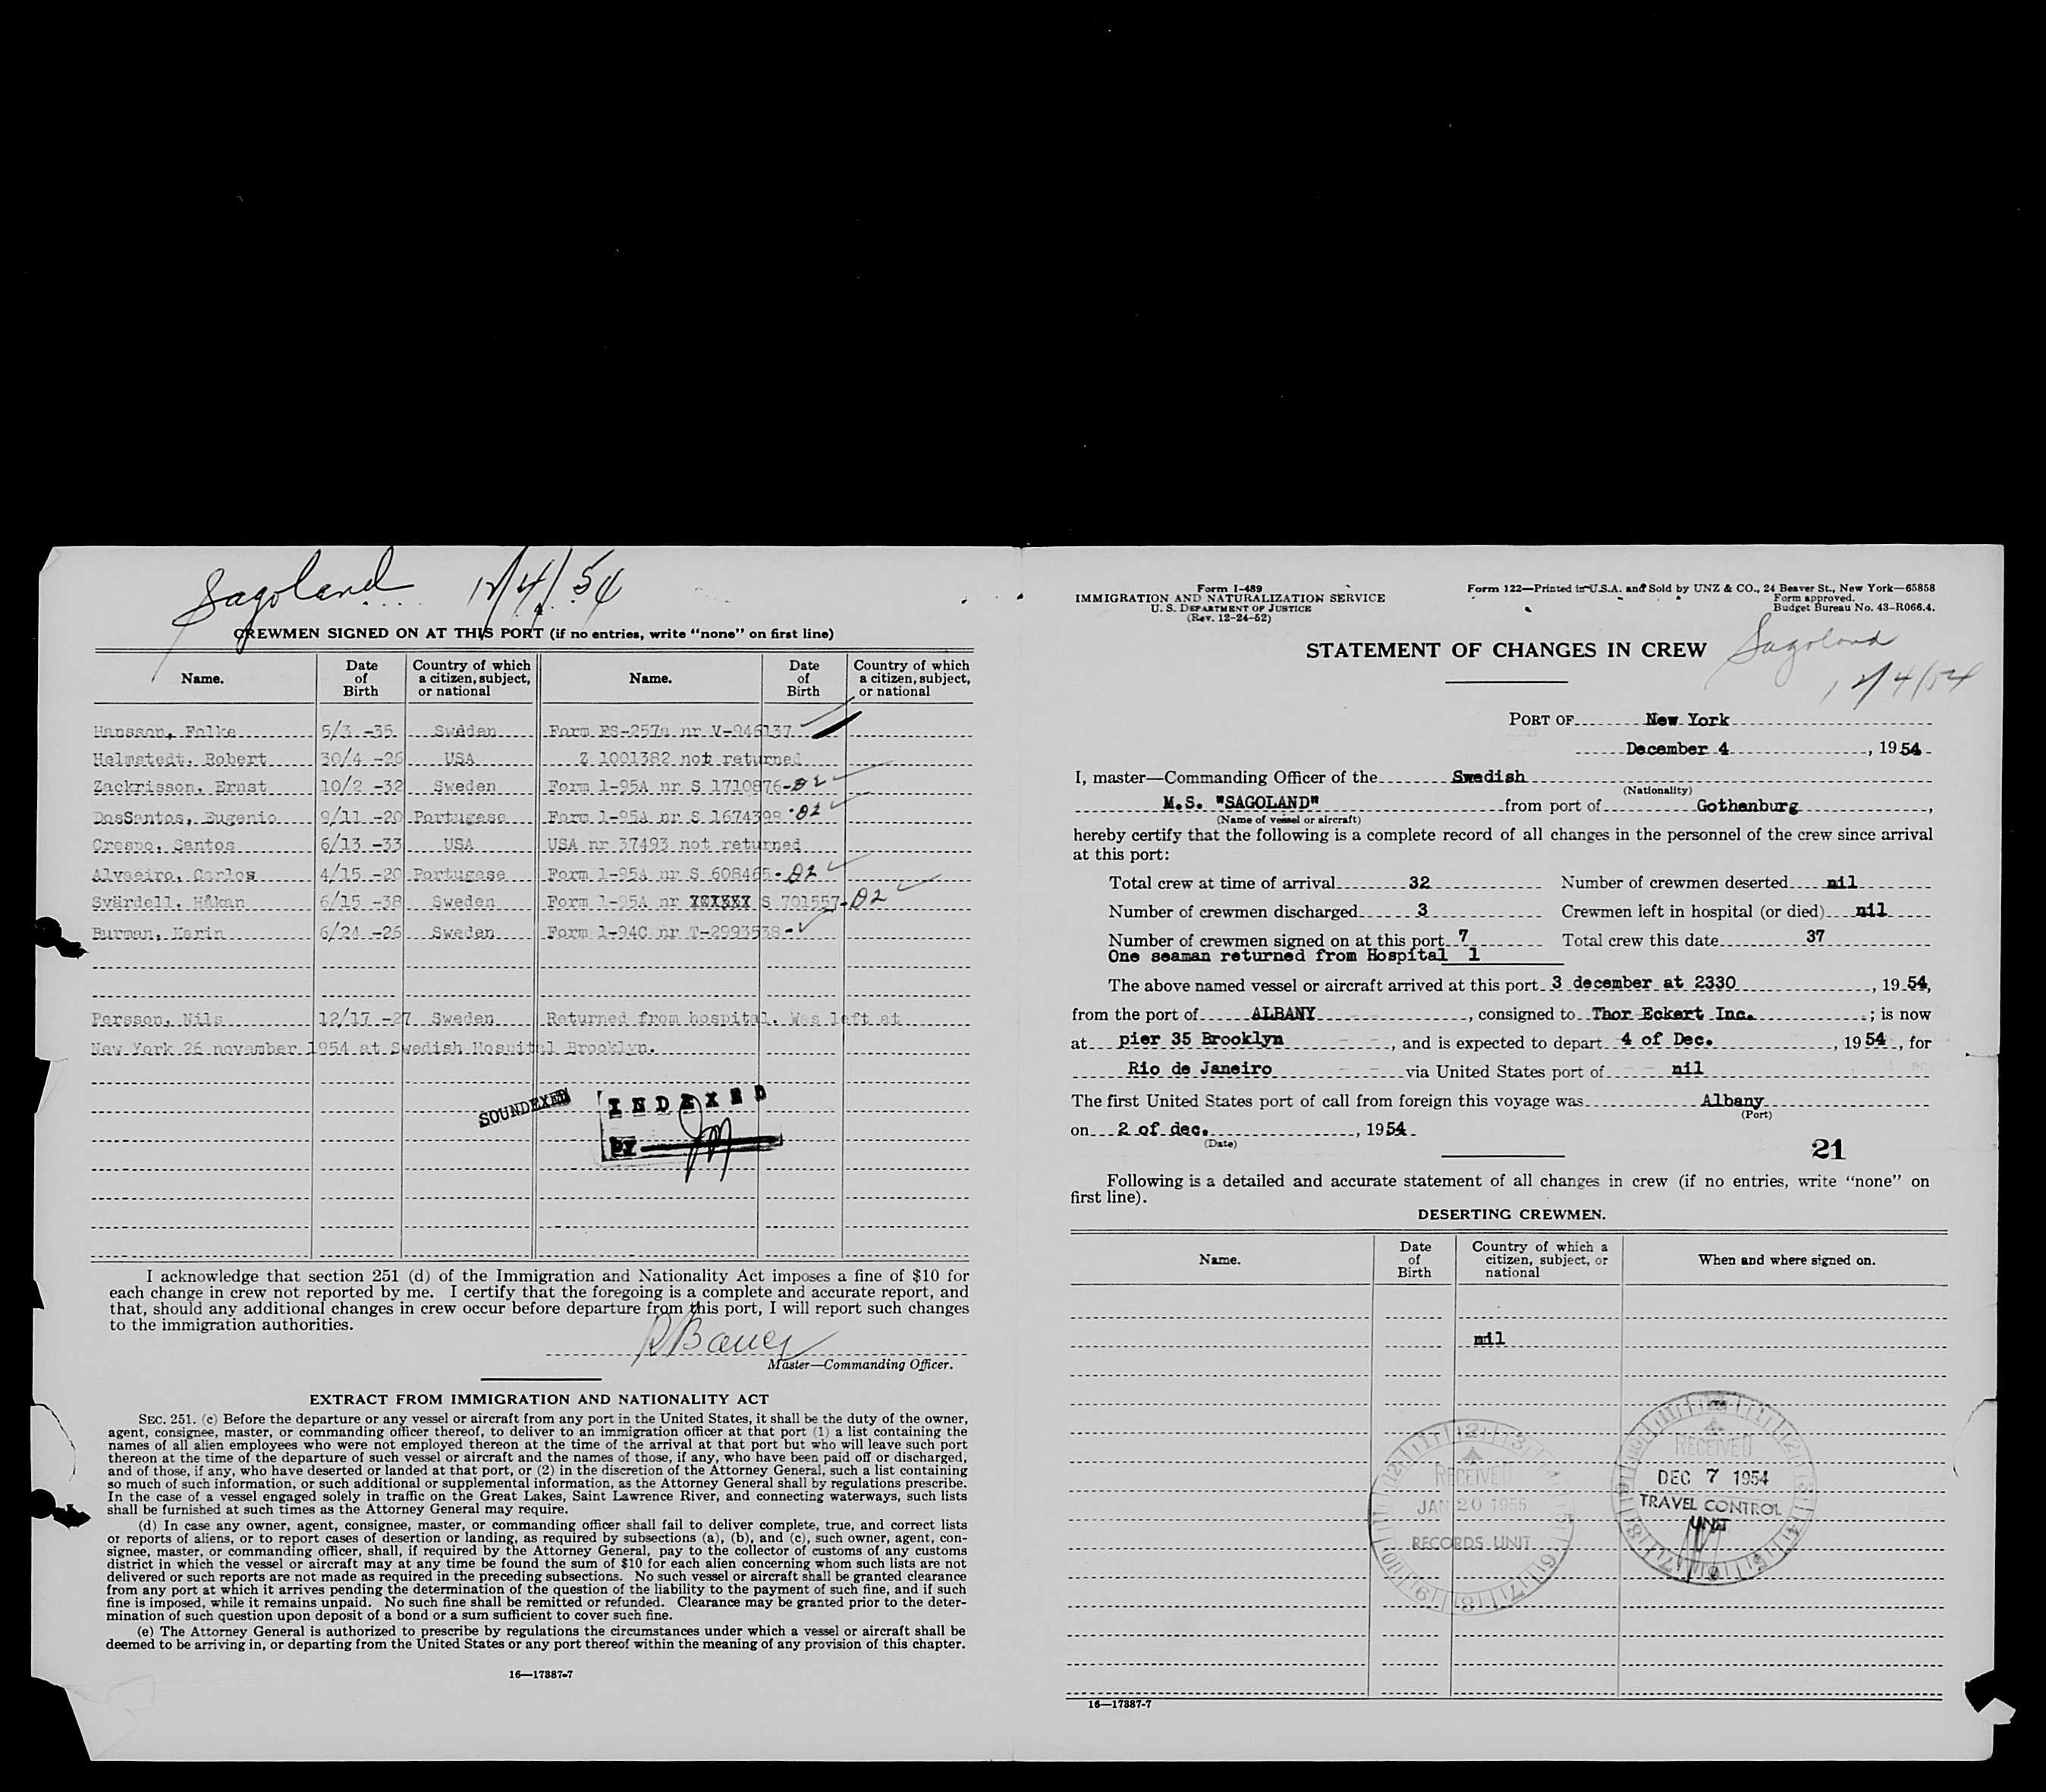 Sagoland 12/4/54
CREWMEN SIGNED ON AT THIS PORT (if no entries, write “none” on first line)
Name. Date of Birth Country of which a citizen, subject, or national Name. Date of Birth Country of which a citizen, subject, or national
Hansson, Folke 5/3 -35 Sweden Form FS-257a nr V-946137
Helmstedt, Robert 30/4 -26 USA Z 1001382 not returned
Zackrisson, Ernst 10/2 -32 Sweden Form 1-95A nr S 1710876-D2
DosSantos, Eugenio 9/11 -20 Portugese Form 1-95A nr S 1674398-D2
Crespo, Santos 6/13 -33 USA USA nr 37493 not returned
Alvaeiro, Carlos 4/15 -20 Portugese Form 1-95A nr S 608465-D2
Svärdell, Håkan 6/15 -38 Sweden Form 1-95A nr XXXXXX S 701557-D2
Burman, Karin 6/24 -26 Sweden Form 1-94C nr T-2993538-
Persson, Nils 12/17 -27 Sweden Returned from hospital. Was left at
New York 26 november 1954 at Swedish Hospital Brooklyn.
SOUNDEXED
INDEXED
BY
I acknowledge that section 251 (d) of the Immigration and Nationality Act imposes a fine of $10 for
each change in crew not reported by me. I certify that the foregoing is a complete and accurate report, and
that, should any additional changes in crew occur before departure from this port, I will report such changes
to the immigration authorities.
Master—Commanding Officer.
EXTRACT FROM IMMIGRATION AND NATIONALITY ACT
SEC. 251. (c) Before the departure or any vessel or aircraft from any port in the United States, it shall be the duty of the owner,
agent, consignee, master, or commanding officer thereof, to deliver to an immigration officer at that port (1) a list containing the
names of all alien employees who were not employed thereon at the time of the arrival at that port but who will leave such port
thereon at the time of the departure of such vessel or aircraft and the names of those, if any, who have been paid off or discharged,
and of those, if any, who have deserted or landed at that port, or (2) in the discretion of the Attorney General, such a list containing
so much of such information, or such additional or supplemental information, as the Attorney General shall by regulations prescribe.
In the case of a vessel engaged solely in traffic on the Great Lakes, Saint Lawrence River, and connecting waterways, such lists
shall be furnished at such times as the Attorney General may require.
(d) In case any owner, agent, consignee, master, or commanding officer shall fail to deliver complete, true, and correct lists
or reports of aliens, or to report cases of desertion or landing, as required by subsections (a), (b), and (c), such owner, agent, con-
signee, master, or commanding officer, shall, if required by the Attorney General, pay to the collector of customs of any customs
district in which the vessel or aircraft may at any time be found the sum of $10 for each alien concerning whom such lists are not
delivered or such reports are not made as required in the preceding subsections. No such vessel or aircraft shall be granted clearance
from any port at which it arrives pending the determination of the question of the liability to the payment of such fine, and if such
fine is imposed, while it remains unpaid. No such fine shall be remitted or refunded. Clearance may be granted prior to the deter-
mination of such question upon deposit of a bond or a sum sufficient to cover such fine.
(e) The Attorney General is authorized to prescribe by regulations the circumstances under which a vessel or aircraft shall be
deemed to be arriving in, or departing from the United States or any port thereof within the meaning of any provision of this chapter.
16—17887-7
Form I-489
IMMIGRATION AND NATURALIZATION SERVICE
U. S. DEPARTMENT OF JUSTICE
(Rev. 12-24-52)
Form 122—Printed in U.S.A. and Sold by UNZ & CO., 24 Beaver St., New York—65858
Form approved.
Budget Bureau No. 43-R066.4.
STATEMENT OF CHANGES IN CREW
Sagoland
12/4/54
PORT OF New York
December 4, 1954
I, master—Commanding Officer of the Swedish
(Nationality)
M.S. "SAGOLAND" from port of Gothenburg,
(Name of vessel or aircraft)
hereby certify that the following is a complete record of all changes in the personnel of the crew since arrival
at this port:
Total crew at time of arrival 32 Number of crewmen deserted nil
Number of crewmen discharged 3 Crewmen left in hospital (or died) nil
Number of crewmen signed on at this port 7 Total crew this date 37
One seaman returned from Hospital 1
The above named vessel or aircraft arrived at this port 3 december at 2330, 1954,
from the port of ALBANY, consigned to Thor Eckert Inc.; is now
at pier 35 Brooklyn, and is expected to depart 4 of Dec., 1954, for
Rio de Janeiro via United States port of nil
The first United States port of call from foreign this voyage was Albany
(Port)
on 2 of dec., 1954
(Date)
21
Following is a detailed and accurate statement of all changes in crew (if no entries, write “none” on
first line).
DESERTING CREWMEN.
Name. Date of Birth Country of which a citizen, subject, or national When and where signed on.
nil
RECEIVED
JAN 20 1955
RECORDS UNIT
RECEIVED
DEC 7 1954
TRAVEL CONTROL
UNIT
16—17887-7